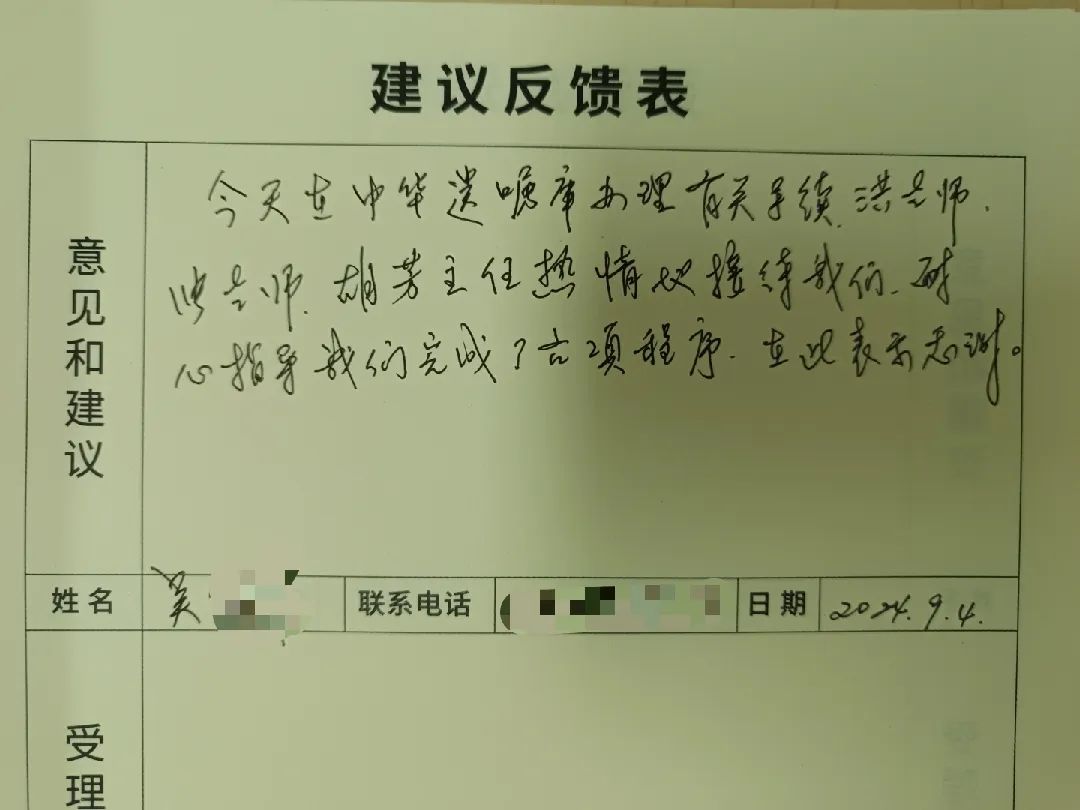 建议反馈表
意见和建议
今天在中华遗嘱库办理有关手续,洪老师、
老师、胡芳主任热情地接待我们,耐
心指导我们完成了各项程序。在此表示感谢。
姓名 吴
联系电话
日期 2024.9.4.
受理